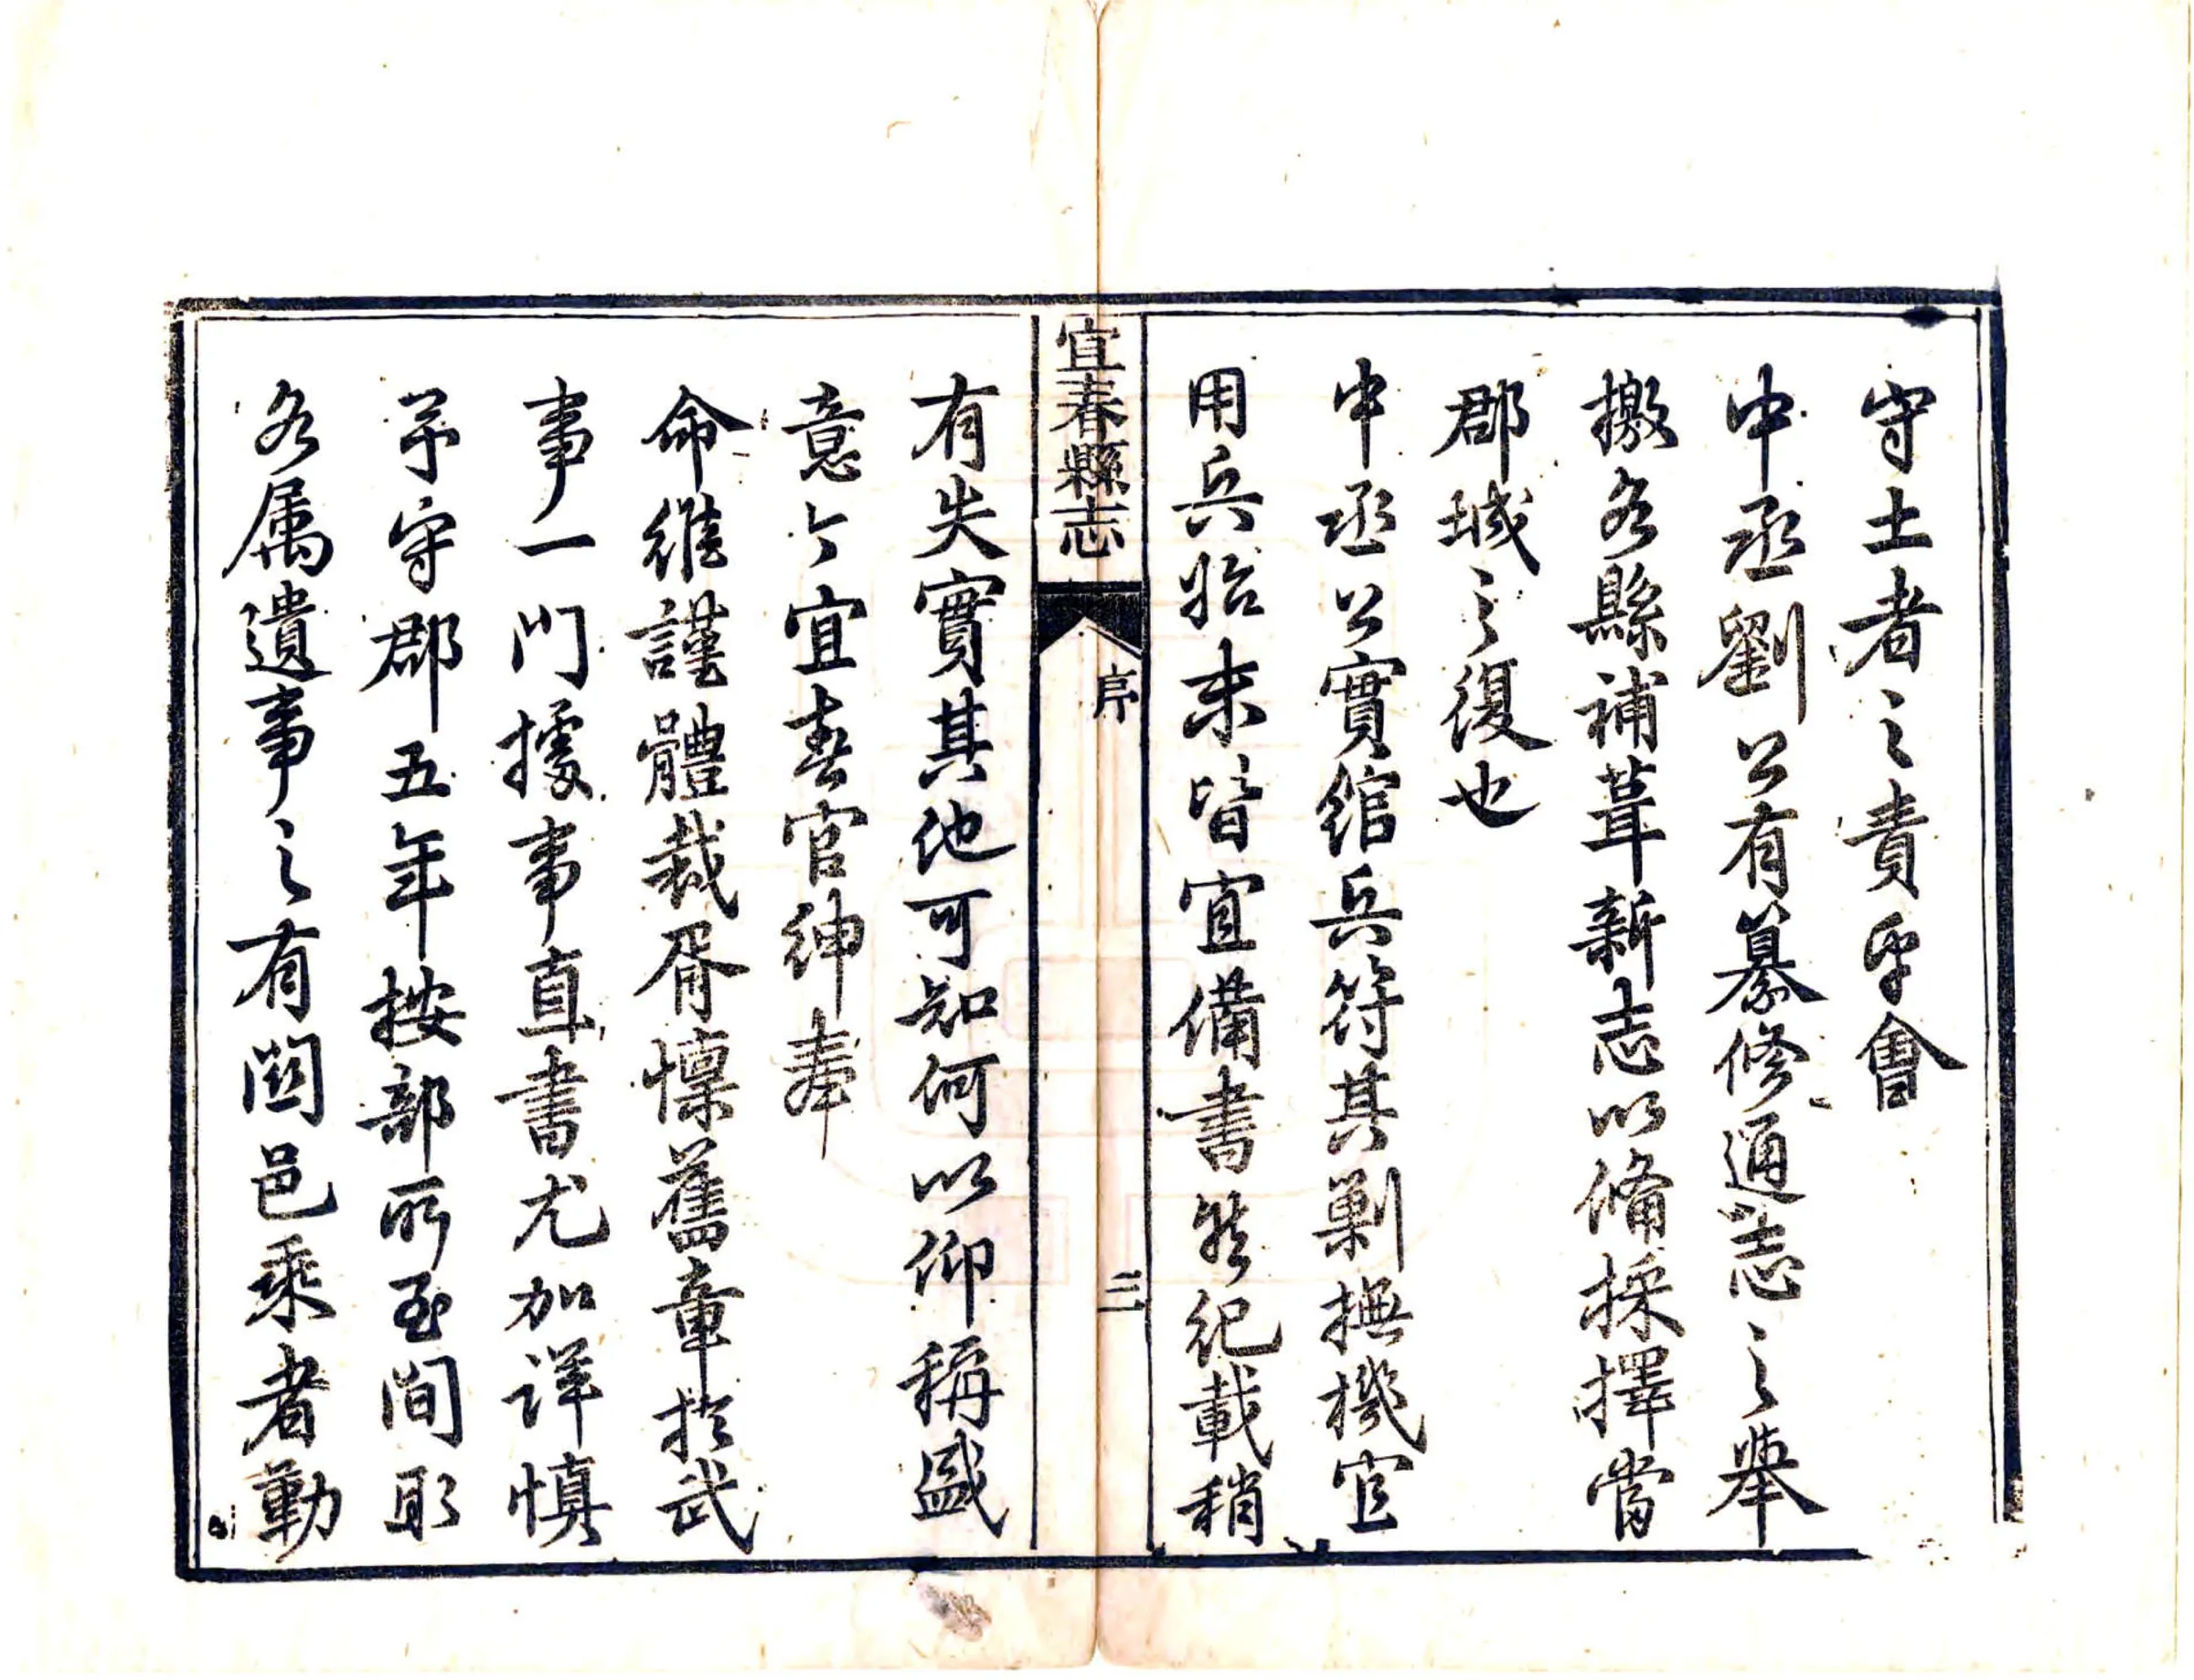 守土者之責乎會
中丞劉公有纂修通志之舉
檄各縣補葺新志以備採擇當
郡城之復也
中丞公實綰兵符其剿撫機宜
用兵始末皆宜備書然紀載稍
宜春縣志
序
三
有失實其他可知何以仰稱盛
意今宜春官紳奉
命維謹體裁胥懍舊章於武
事一門據事直書尤加詳慎
予守郡五年按部所至間取
各属遺事之有関邑乘者勤